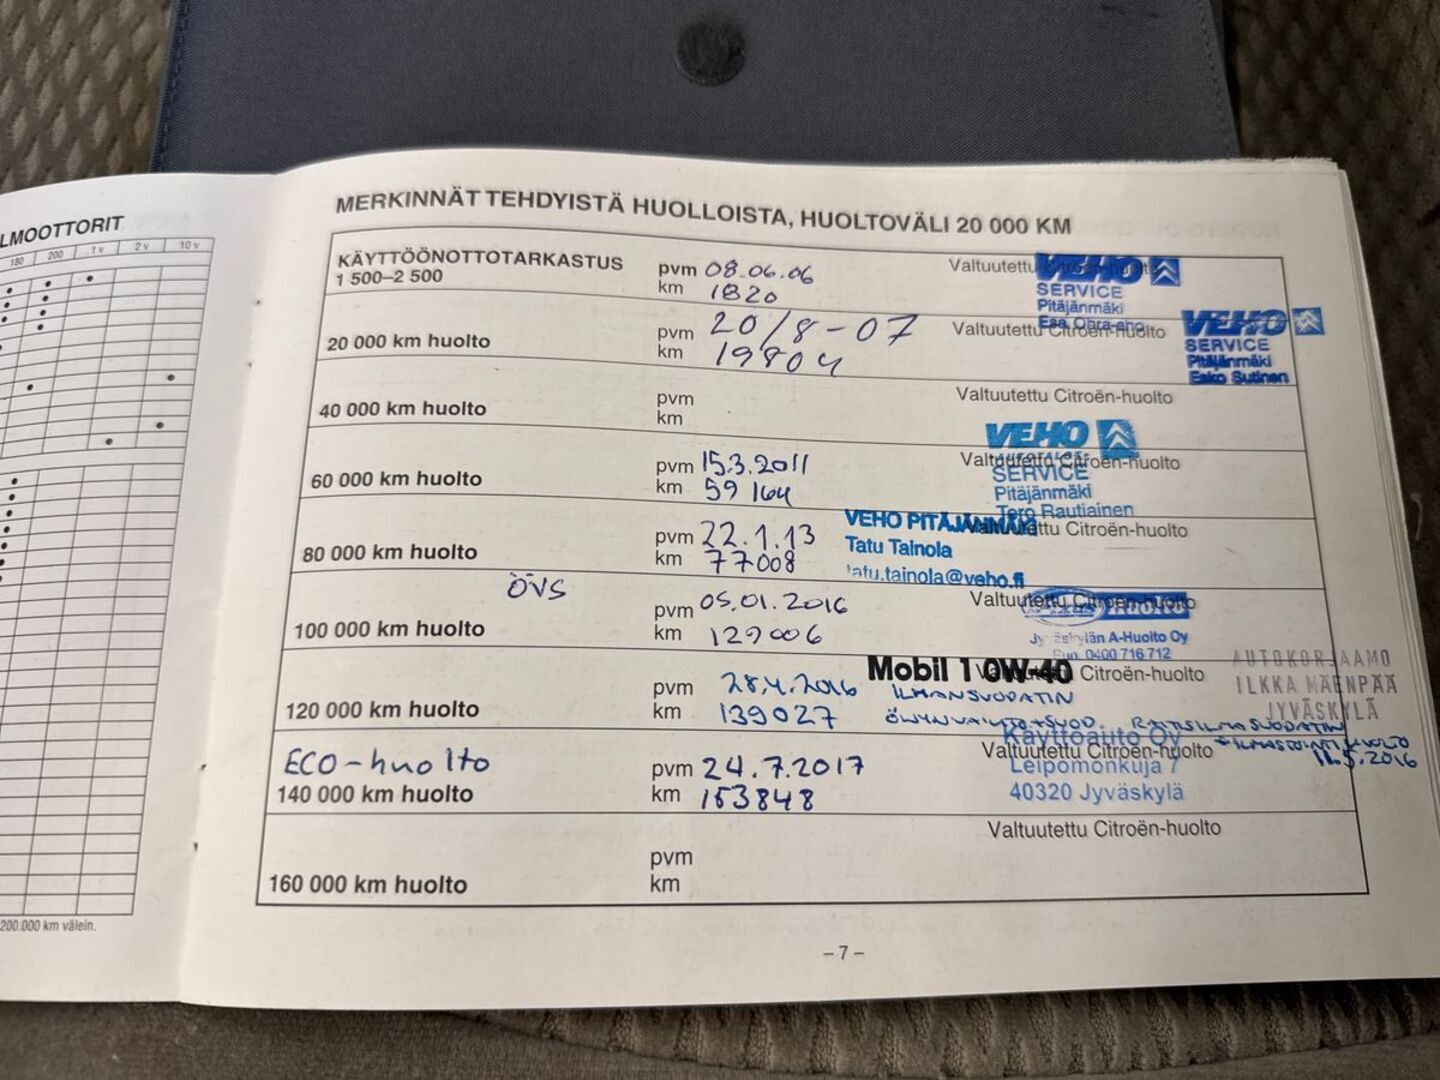 LMOOTTORIT
180 200 1 v 2 v 10 v
200.000 km välein.
MERKINNÄT TEHDYISTÄ HUOLLOISTA, HUOLTOVÄLI 20 000 KM
KÄYTTÖÖNOTTOTARKASTUS
1 500–2 500
pvm 08.06.06
km 1820
Valtuutettu Citroën-huolto
VEHO
SERVICE
Pitäjänmäki
Esa Ohra-aho
20 000 km huolto
pvm 20/8-07
km 19804
Valtuutettu Citroën-huolto
VEHO
SERVICE
Pitäjänmäki
Esko Sutinen
40 000 km huolto
pvm
km
Valtuutettu Citroën-huolto
60 000 km huolto
pvm 15.3.2011
km 59 164
Valtuutettu Citroën-huolto
VEHO
SERVICE
Pitäjänmäki
Tero Rautiainen
80 000 km huolto
pvm 22.1.13
km 77008
Valtuutettu Citroën-huolto
VEHO PITÄJÄNMÄKI
Tatu Tainola
tatu.tainola@veho.fi
ÖVS
100 000 km huolto
pvm 05.01.2016
km 129006
Valtuutettu Citroën-huolto
huolto
Jyväskylän A-Huolto Oy
Puh. 0400 716 712
120 000 km huolto
pvm 28.4.2016
km 139027
Valtuutettu Citroën-huolto
Mobil 1 0W-40
ILMANSUODATIN
ÖLJYNVAIHTO+SUOD. RAITISILMASUODATIN
+ILMASTOINTIHUOLTO
11.5.2016
AUTOKORJAAMO
ILKKA MÄENPÄÄ
JYVÄSKYLÄ
ECO-huolto
140 000 km huolto
pvm 24.7.2017
km 153848
Valtuutettu Citroën-huolto
Käyttöauto Oy
Leipomonkuja 7
40320 Jyväskylä
160 000 km huolto
pvm
km
Valtuutettu Citroën-huolto
– 7 –